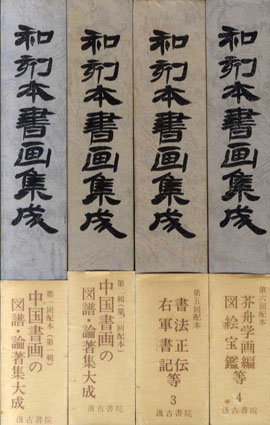 和刻本書画集成
第一回配本(第一輯)
中国書画の
図譜・論著集大成
汲古書院
和刻本書画集成
第一輯(第一回配本)
中国書画の
図譜・論著集大成
汲古書院
和刻本書画集成
第五回配本
書法正伝
右軍書記 等
3
汲古書院
和刻本書画集成
第六回配本
芥舟学画編
図絵宝鑑 等
4
汲古書院